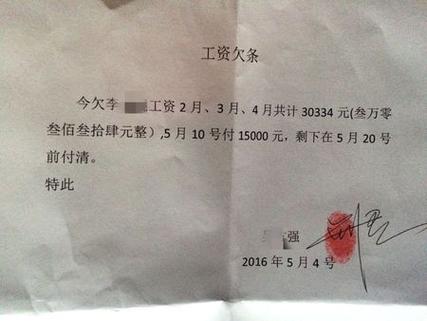 工资欠条
今欠李 工资2月、3月、4月共计30334元(叁万零
叁佰叁拾肆元整),5月10号付15000元，剩下在5月20号
前付清。
特此
强
2016年5月4号